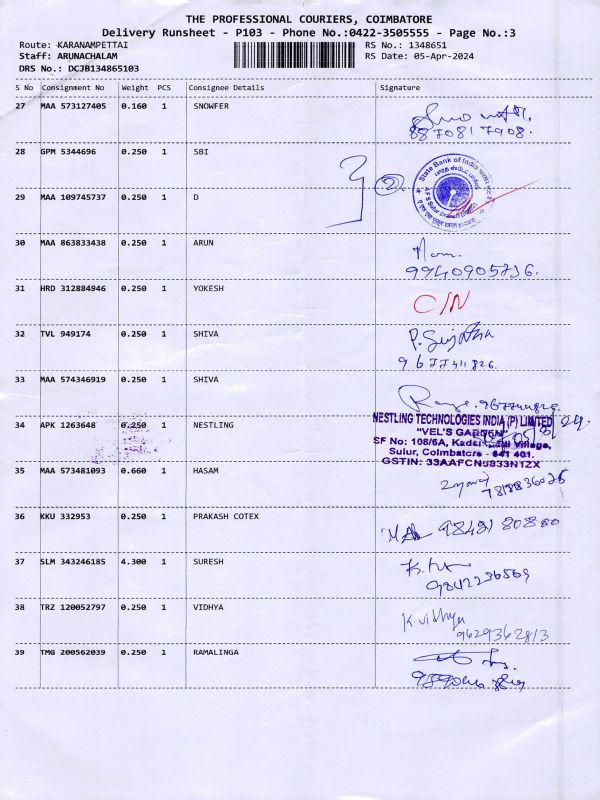 THE PROFESSIONAL COURIERS, COIMBATORE
Delivery Runsheet - P103 - Phone No.:0422-3505555 - Page No.:3
Route: KARANAMPETTAI RS No.: 1348651
Staff: ARUNACHALAM RS Date: 05-Apr-2024
DRS No.: DCJB134865103
S No Consignment No Weight PCS Consignee Details Signature
27 MAA 573127405 0.160 1 SNOWFER
8870817908.
28 GPM 5344696 0.250 1 SBI
State Bank of India
2.
29 MAA 109745737 0.250 1 D
30 MAA 863833438 0.250 1 ARUN
9940905736.
31 HRD 312884946 0.250 1 YOKESH
32 TVL 949174 0.250 1 SHIVA
9677411826.
33 MAA 574346919 0.250 1 SHIVA
34 APK 1263648 0.250 1 NESTLING
NESTLING TECHNOLOGIES INDIA (P) LIMITED
"VEL'S GARDEN"
SF No: 108/6A, Village,
Sulur, Coimbatore - 641 401.
35 MAA 573481093 0.660 1 HASAM
36 KKU 332953 0.250 1 PRAKASH COTEX
37 SLM 343246185 4.300 1 SURESH
9842236569
38 TRZ 120052797 0.250 1 VIDHYA
K.vidhya
9629362813
39 TMG 200562039 0.250 1 RAMALINGA